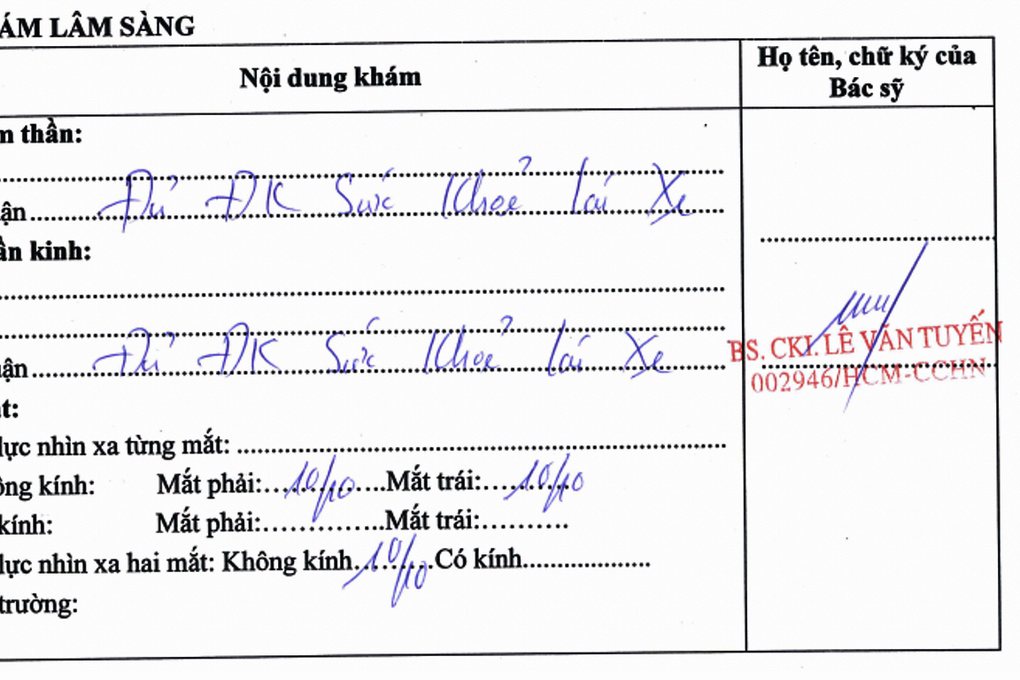 ÁM LÂM SÀNG
Nội dung khám
Họ tên, chữ ký của
Bác sỹ
m thần:
ận Đủ ĐK Sức Khoẻ lái Xe
ần kinh:
ận Đủ ĐK Sức Khoẻ lái Xe
BS. CKI. LÊ VĂN TUYẾN
002946/HCM-CCHN
ắt:
lực nhìn xa từng mắt:
ông kính: Mắt phải: 10/10 Mắt trái: 10/10
kính: Mắt phải: Mắt trái:
lực nhìn xa hai mắt: Không kính 10/10 Có kính
trường: